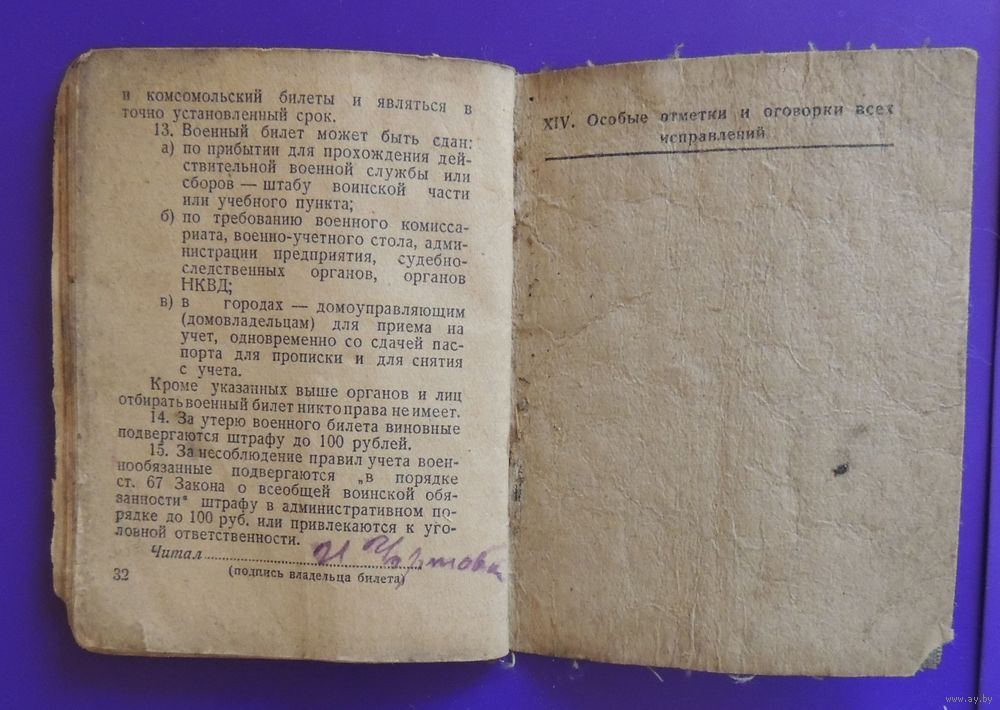 и комсомольский билеты и являться в
точно установленный срок.
13. Военный билет может быть сдан:
а) по прибытии для прохождения дей-
ствительной военной службы или
сборов — штабу воинской части
или учебного пункта;
б) по требованию военного комисса-
риата, военно-учетного стола, адми-
нистрации предприятия, судебно-
следственных органов, органов
НКВД;
в) в городах — домоуправляющим
(домовладельцам) для приема на
учет, одновременно со сдачей пас-
порта для прописки и для снятия
с учета.
Кроме указанных выше органов и лиц
отбирать военный билет никто права не имеет.
14. За утерю военного билета виновные
подвергаются штрафу до 100 рублей.
15. За несоблюдение правил учета воен-
нообязанные подвергаются „в порядке
ст. 67 Закона о всеобщей воинской обя-
занности" штрафу в административном по-
рядке до 100 руб. или привлекаются к уго-
ловной ответственности.
Читал
(подпись владельца билета)
32
XIV. Особые отметки и оговорки всех
исправлений
www.ay.by